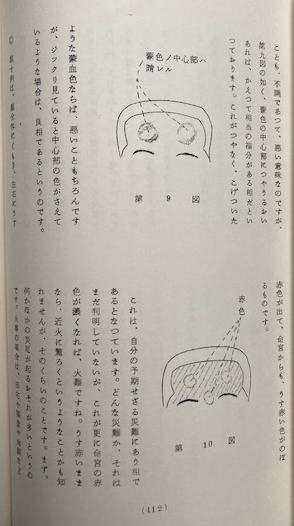 ことも、不調であって、悪い意味なのですが、
第九図の如く、蒙色の中心部につやうるおい
あれば、かえって相当の福分がある相だとい
っております。これがつやなく、こげついた
蒙色ノ中心部ハ
晴レル
第9図
ような蒙血色ならば、悪いこともちろんです
が、ジックリ見ていると中心部の色がさえて
いるような場合は、良相であるというのです。
◎
赤色が出て、命宮からも、うす赤い色がのぼ
るものです。
赤色
第10図
これは、自分の予期せざる災難にあう相で
あるとなっています。どんな災難か、それは
まだ判明していないが、これが更に命宮の赤
色が濃くなれば、火難ですね。うす赤いまま
なら、近火に驚くというようなことかも知
れませんが、そのくらいのことです。まず、
何かほかの災厄が起るおそれが多いというの
です。火事の場合は、自宅や
(412)